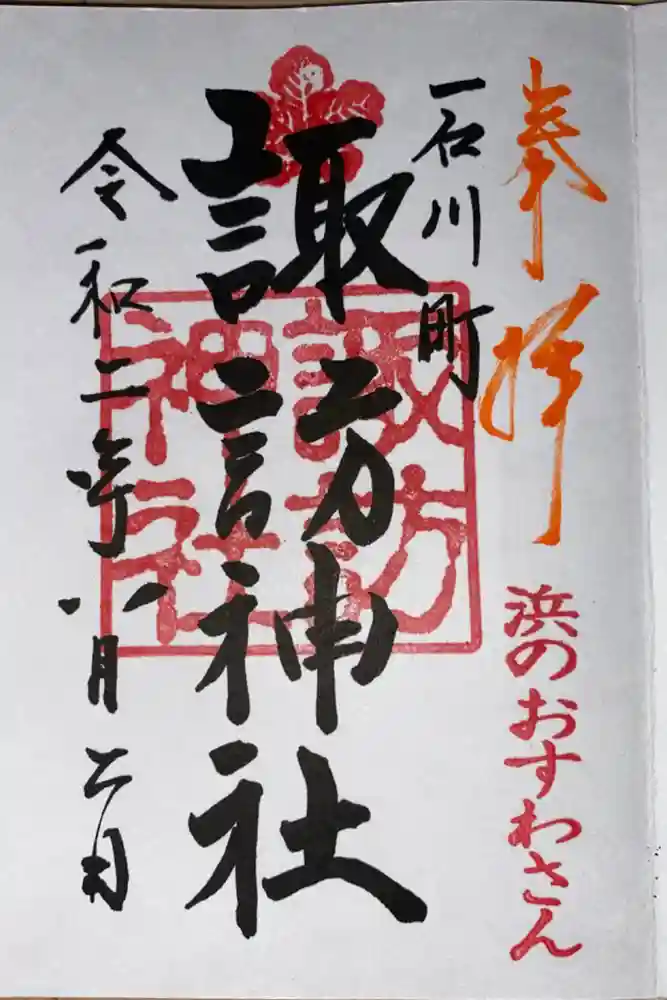 奉拝
浜のおすわさん
石川町
諏訪神社
諏訪神社
令和二年八月二日